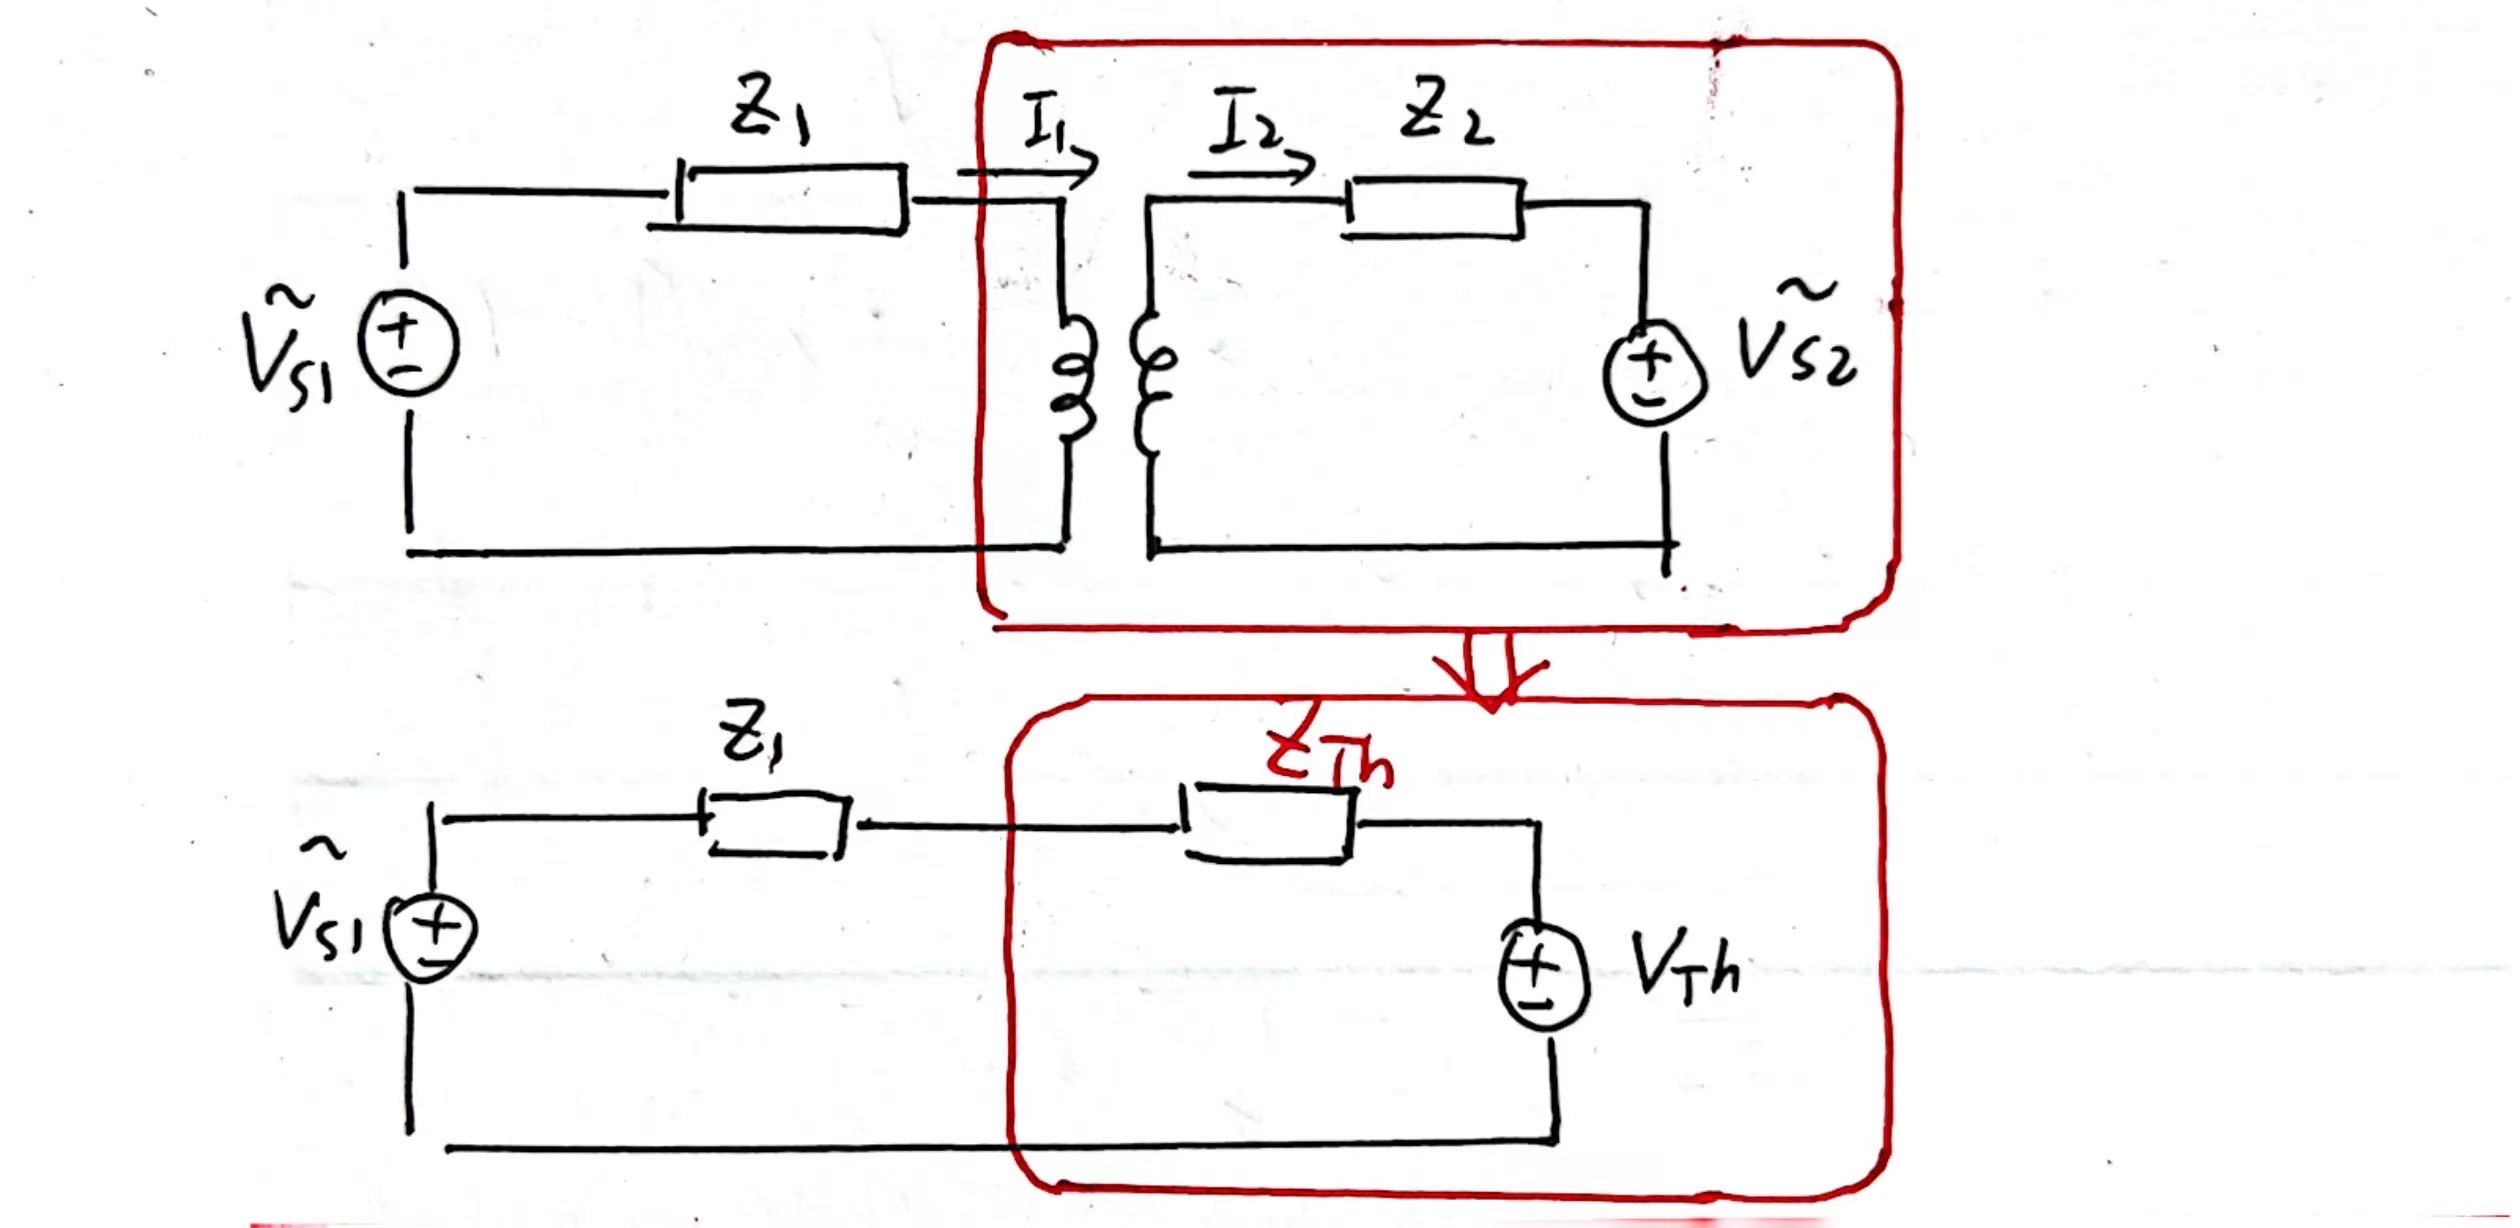 Z1 I1 I2 Z2
ṼS1 + - + - ṼS2
Z1 ZTh
ṼS1 + - + - VTh